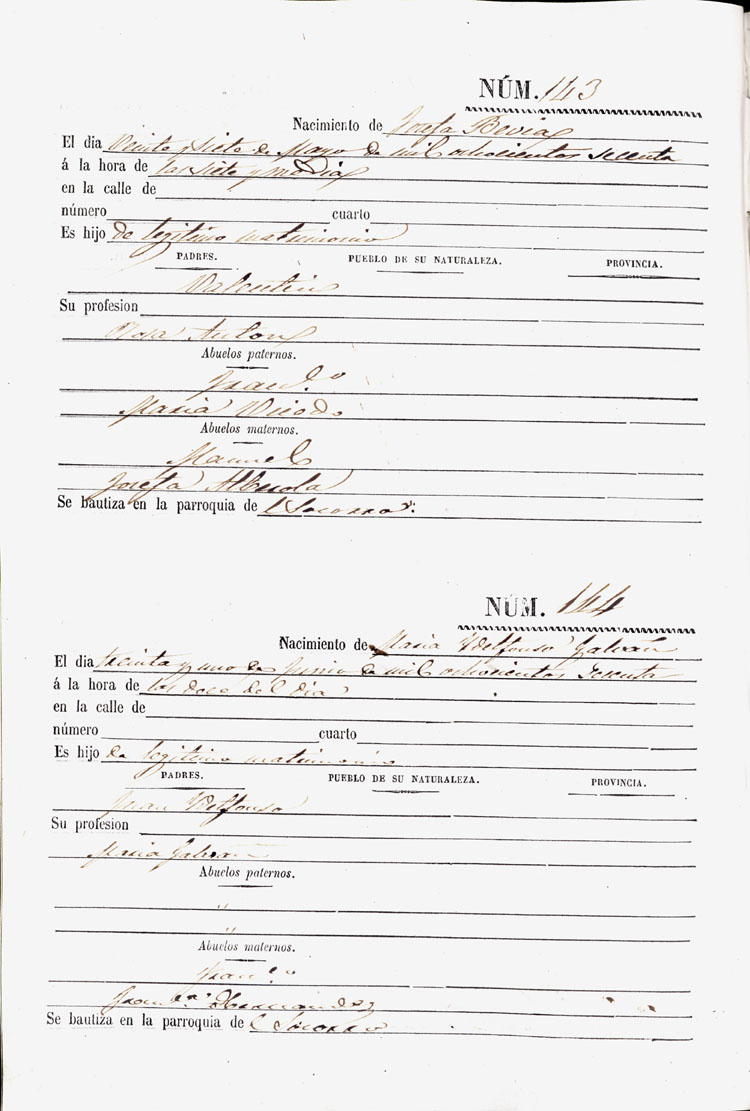 NÚM. 143
Nacimiento de Josefa Bevia
El dia Veinte y siete de Mayo de mil ochocientos secenta
á la hora de las siete y media
en la calle de
número cuarto
Es hijo de legitimo matrimonio
PADRES. PUEBLO DE SU NATURALEZA. PROVINCIA.
Valentin
Su profesion
Rosa Anton
Abuelos paternos.
Fran.co
Maria
Abuelos maternos.
Manuel
Josefa Alberola
Se bautiza en la parroquia de l Socorro.
NÚM. 144
Nacimiento de Maria Ydelfonso Galvañ
El dia treinta y uno de Junio de mil ochocientos secenta
á la hora de las doce del dia
en la calle de
número cuarto
Es hijo de legitimo matrimonio
PADRES. PUEBLO DE SU NATURALEZA. PROVINCIA.
Juan Ydelfonso
Su profesion
Maria Galvañ
Abuelos paternos.
"
"
Abuelos maternos.
Fran.co
Fran.ca Hernandez
Se bautiza en la parroquia de l Socorro